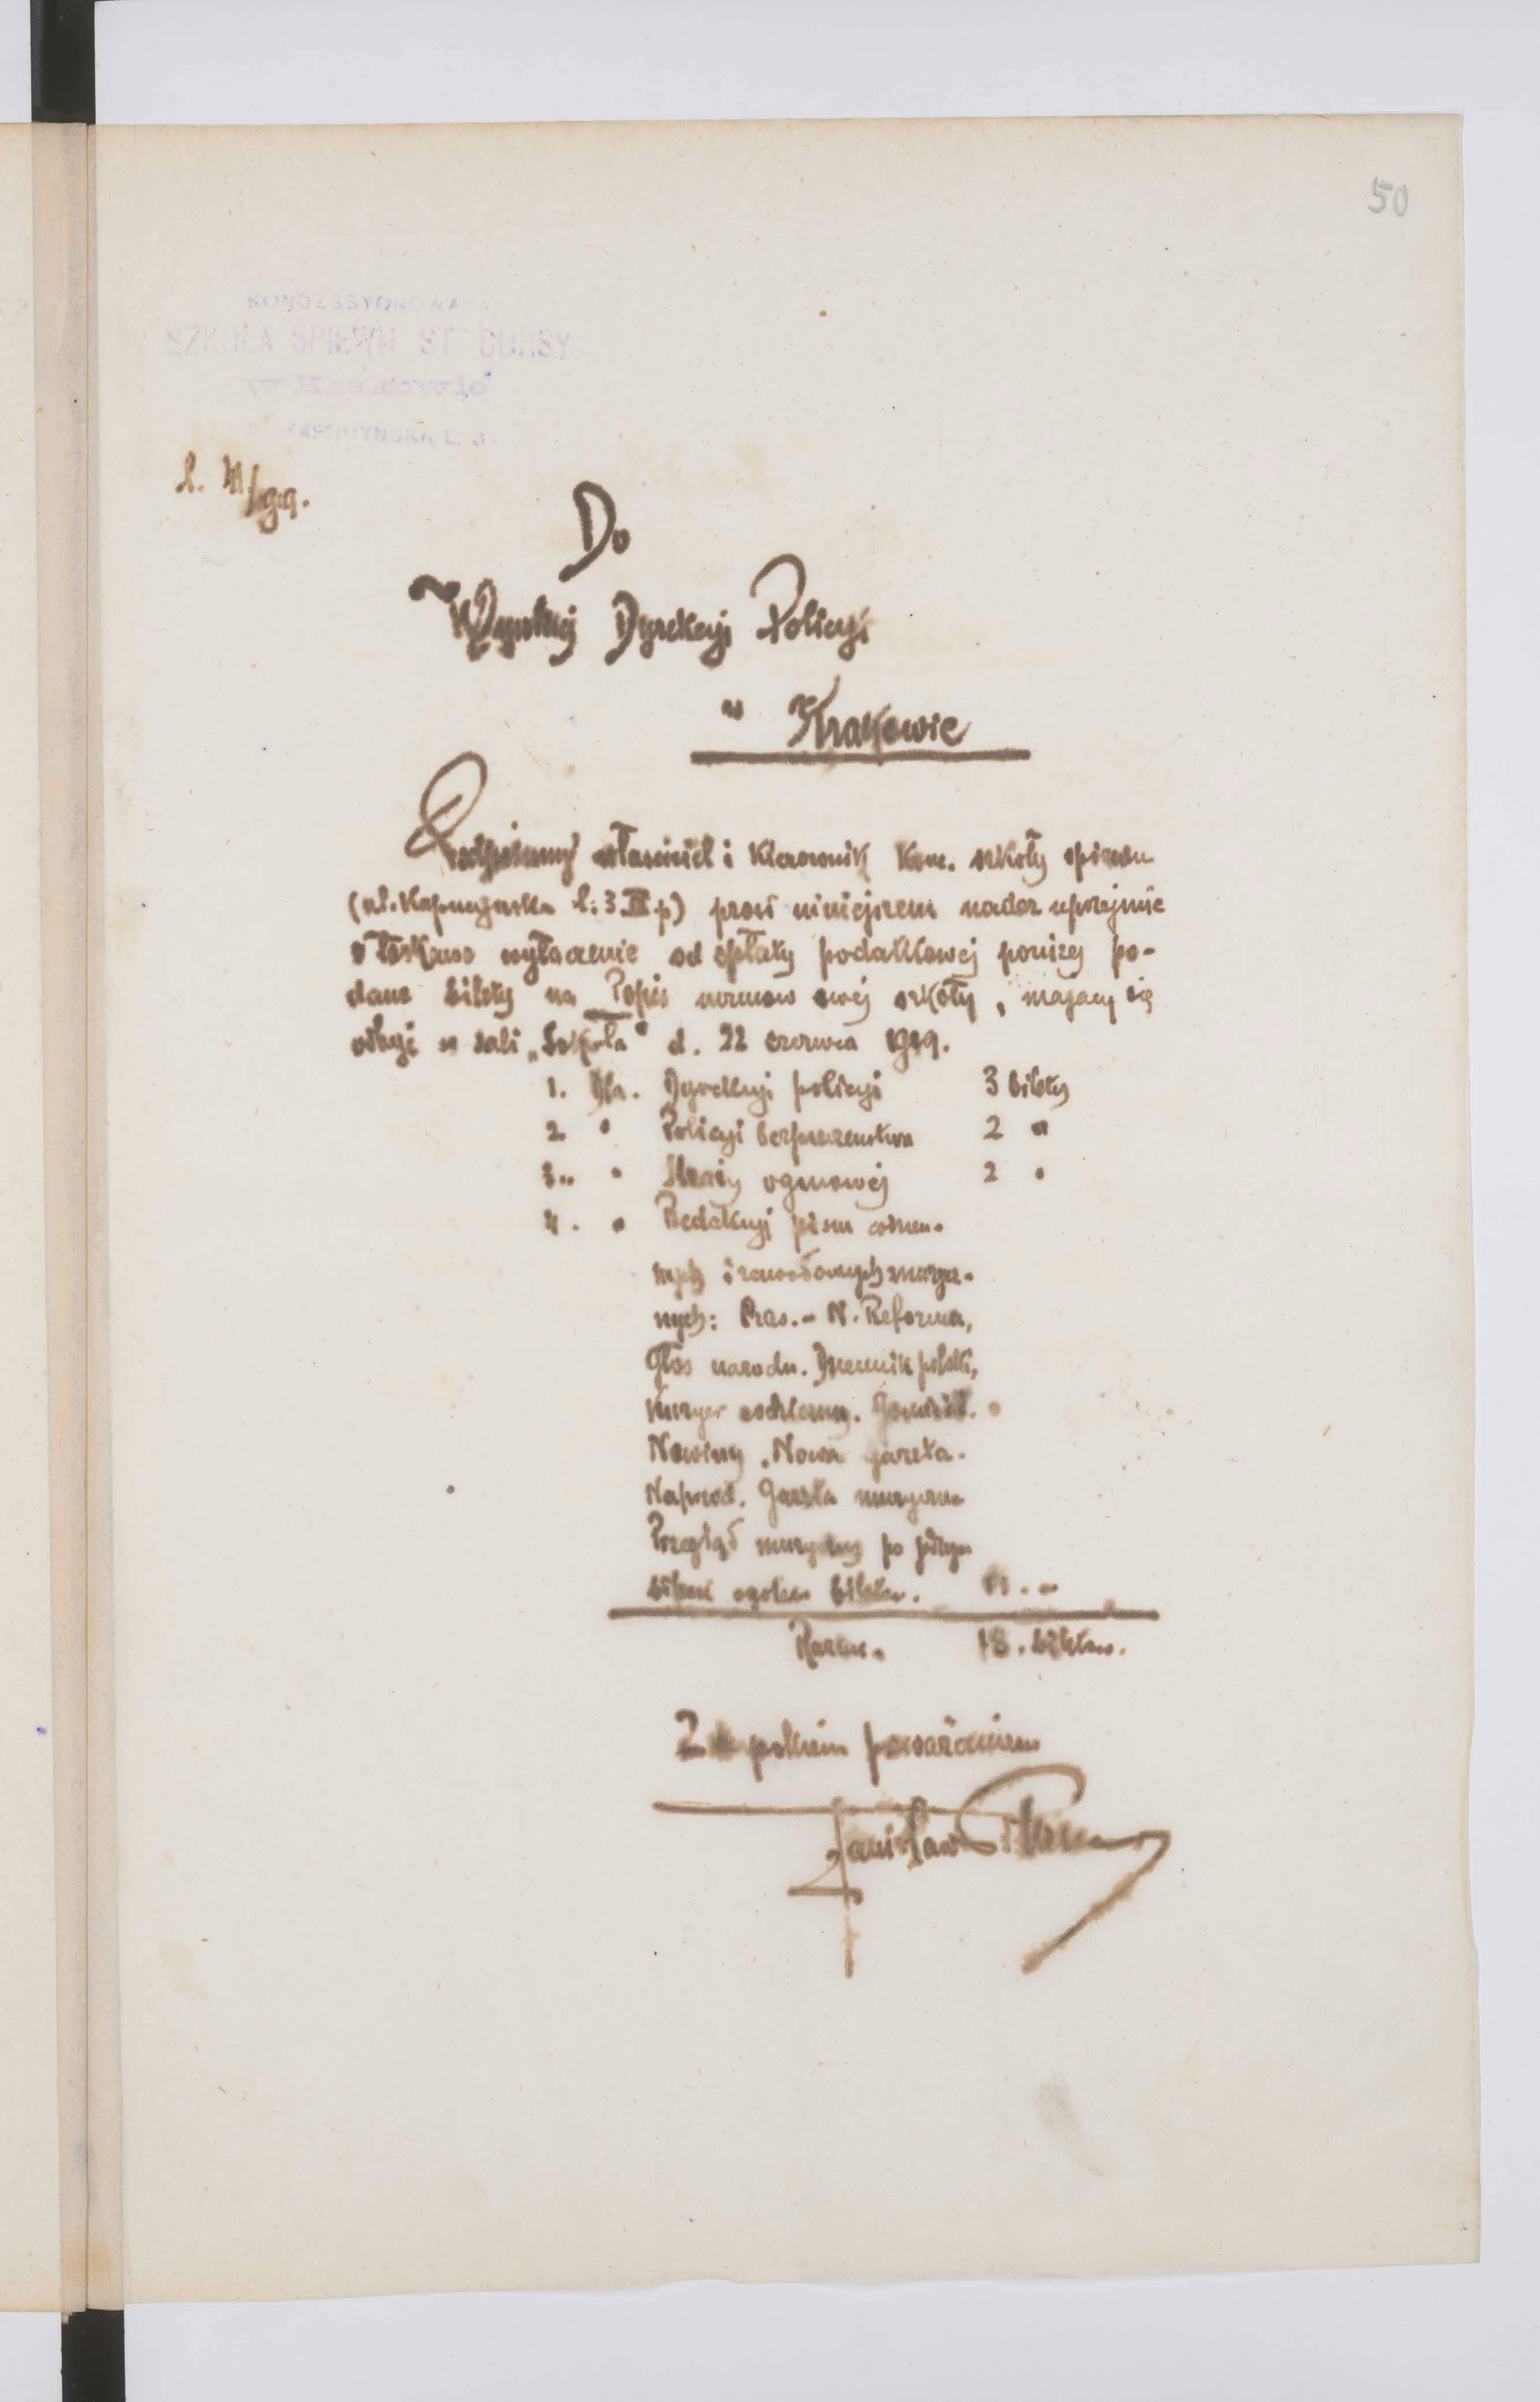 50
KONCESSYONOWANA
SZKOŁA ŚPIEWU ST. BURSY
w Krakowie
KAPUCYŃSKA L. 3.
L. 41/1919.
Do
Wysokiej Dyrekcyi Policyi
w Krakowie
Podpisany właściciel i kierownik kon. szkoły śpiewu
(ul. Kapucyńska l. 3 III p) prosi niniejszem nader uprzejmie
o łaskawe wyłączenie od opłaty podatkowej poniżej po-
dane bilety na Popis uczniów swej szkoły, mający się
odbyć w sali „Sokoła" d. 22 czerwca 1919.
1. Dla. Dyrekcyi policyi 3 bilety
2. " Policyi bezpieczeństwa 2 "
3. " Straży ogniowej 2 "
4. " Redakcyi pism codzien-
nych i zawodowych muzycz-
nych: Czas. - N. Reforma,
Głos narodu. Dziennik polski,
Kuryer codzienny. Goniec
Nowiny. Nowa gazeta.
Naprzód. Gazeta muzyczna
Przegląd muzyczny po jednym
bilecie ogółem biletów. 11. "
Razem. 18. biletów.
Z poważaniem
Stanisław Bursa